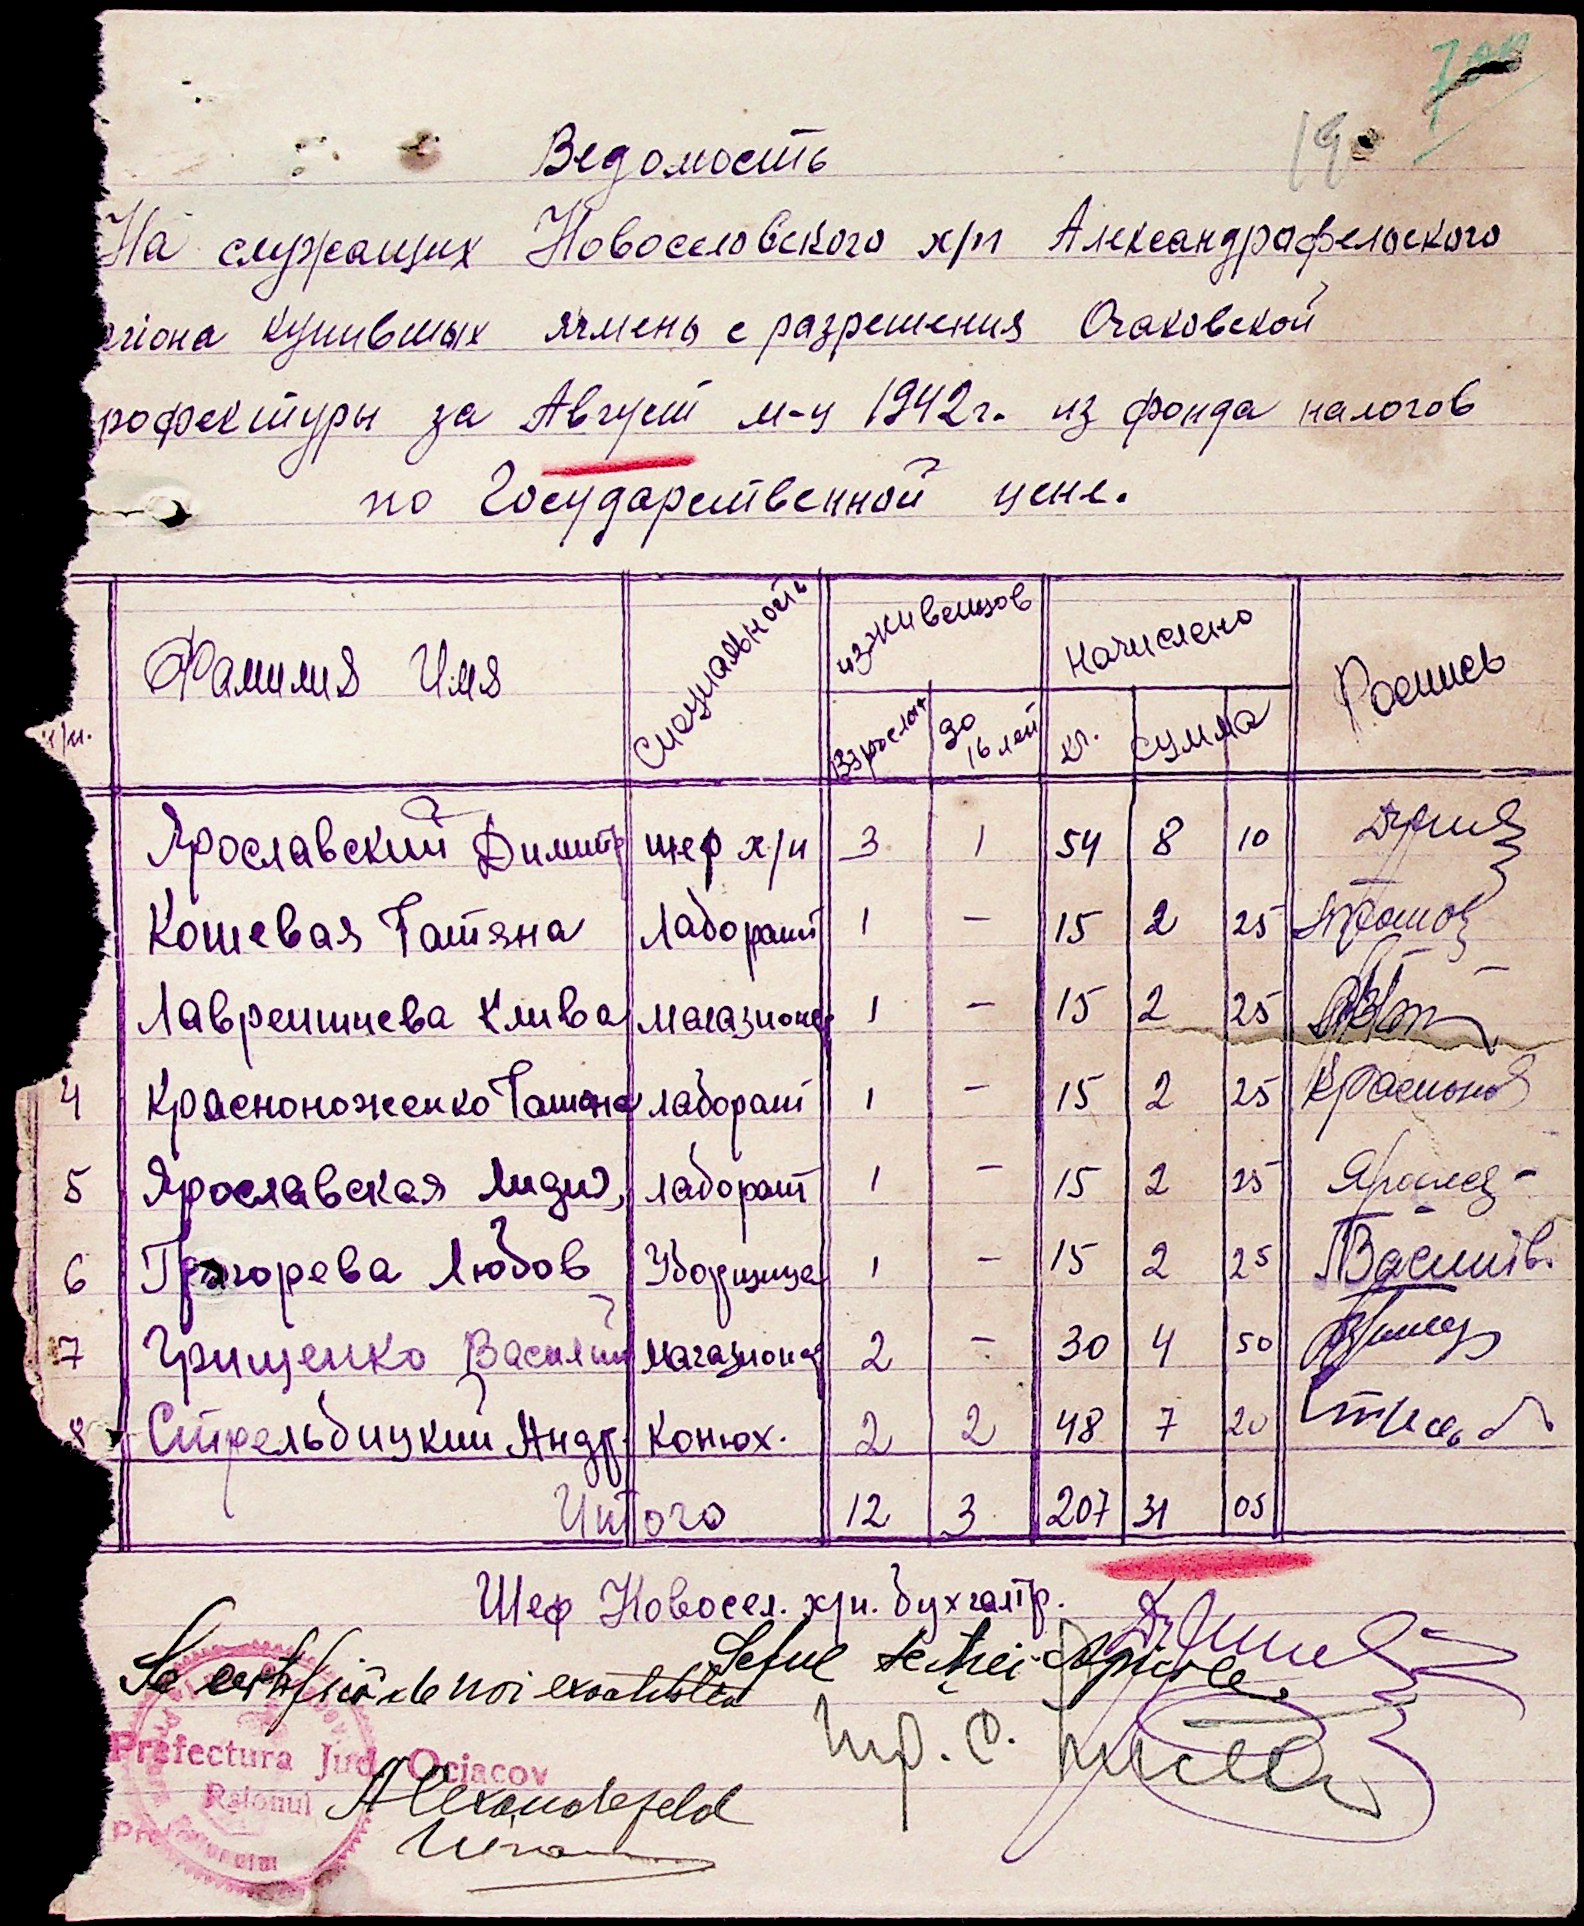 19
Ведомость
На служащих Новоселовского х/п Александрафельского
егiона купившых ячмень с разрешения Очаковской
рофектуры за Август м-ц 1942г. из фонда налогов
по Государственной цене.
п/п. Фамилия Имя Специальность изживенцов Начислено Роспись
Взрослых до 16 лет кг. сумма
Ярославский Димитр шеф х/п 3 1 54 8 10
Кошевая Татяна Лаборант 1 – 15 2 25
Лаврентиева Клива магазионер 1 – 15 2 25
4 Красноноженко Татяна лаборант 1 – 15 2 25
5 Ярославская Лидия лаборант 1 – 15 2 25
6 Григорева Любов Уборщица 1 – 15 2 25
7 Грищенко Василий магазионер 2 – 30 4 50
8 Стрельбицкий Андр. Конюх. 2 2 48 7 20
Итого 12 3 207 31 05
Шеф Новосел. х/п. бухгалтр.
Se certifică de noi exactitatea Șeful Fermei Agricole
Prefectura Jud. Ociacov
Raionul Alexandrfeld